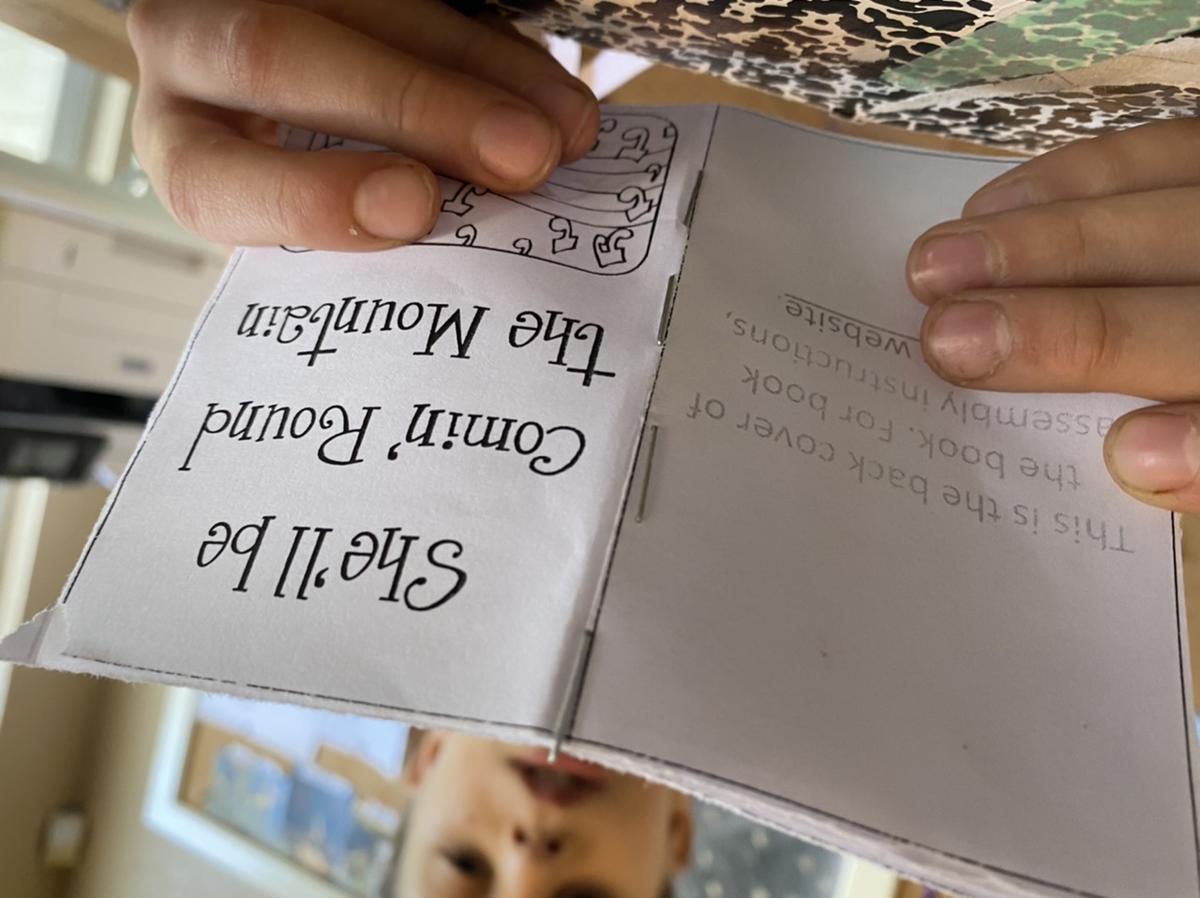 She'll be
Comin' Round
the Mountain
This is the back cover of
the book. For book
assembly instructions,
website.